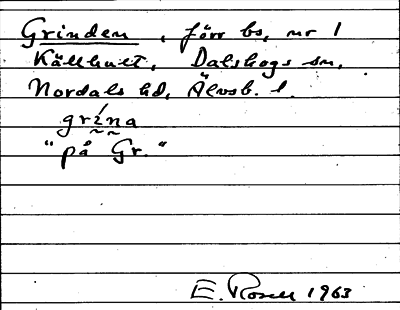 Grinden, förr bs, nr 1
Källhult, Dalskogs sn,
Nordals hd, Älvsb. l.
grína
"på Gr."
E. Rosell 1963